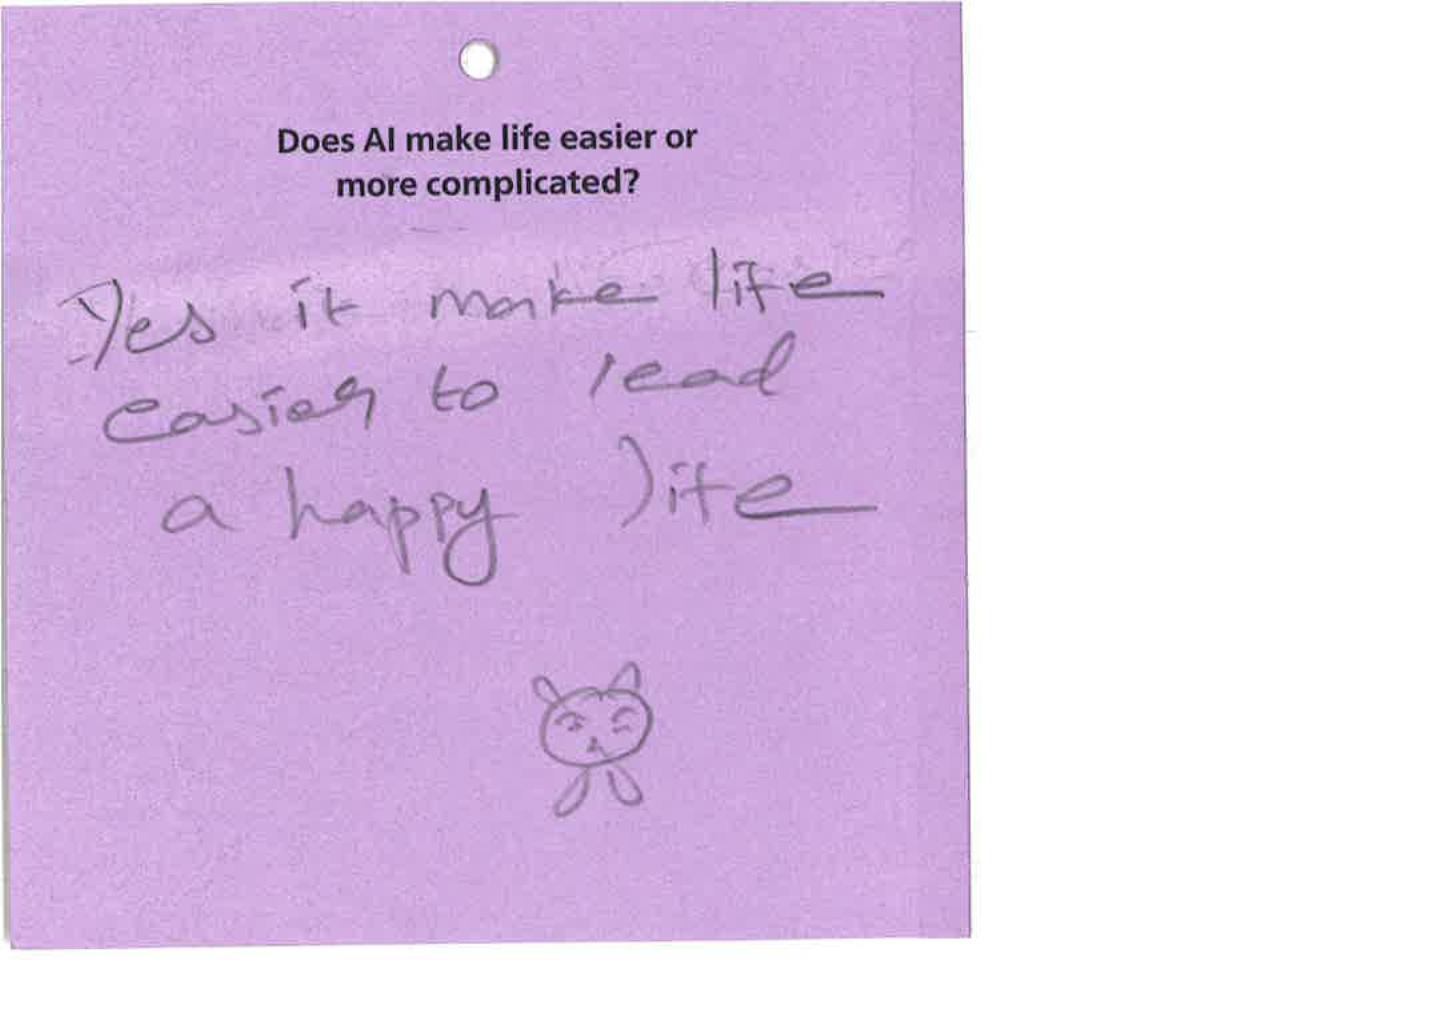 Does AI make life easier or
more complicated?
Yes it make life
easier to lead
a happy life